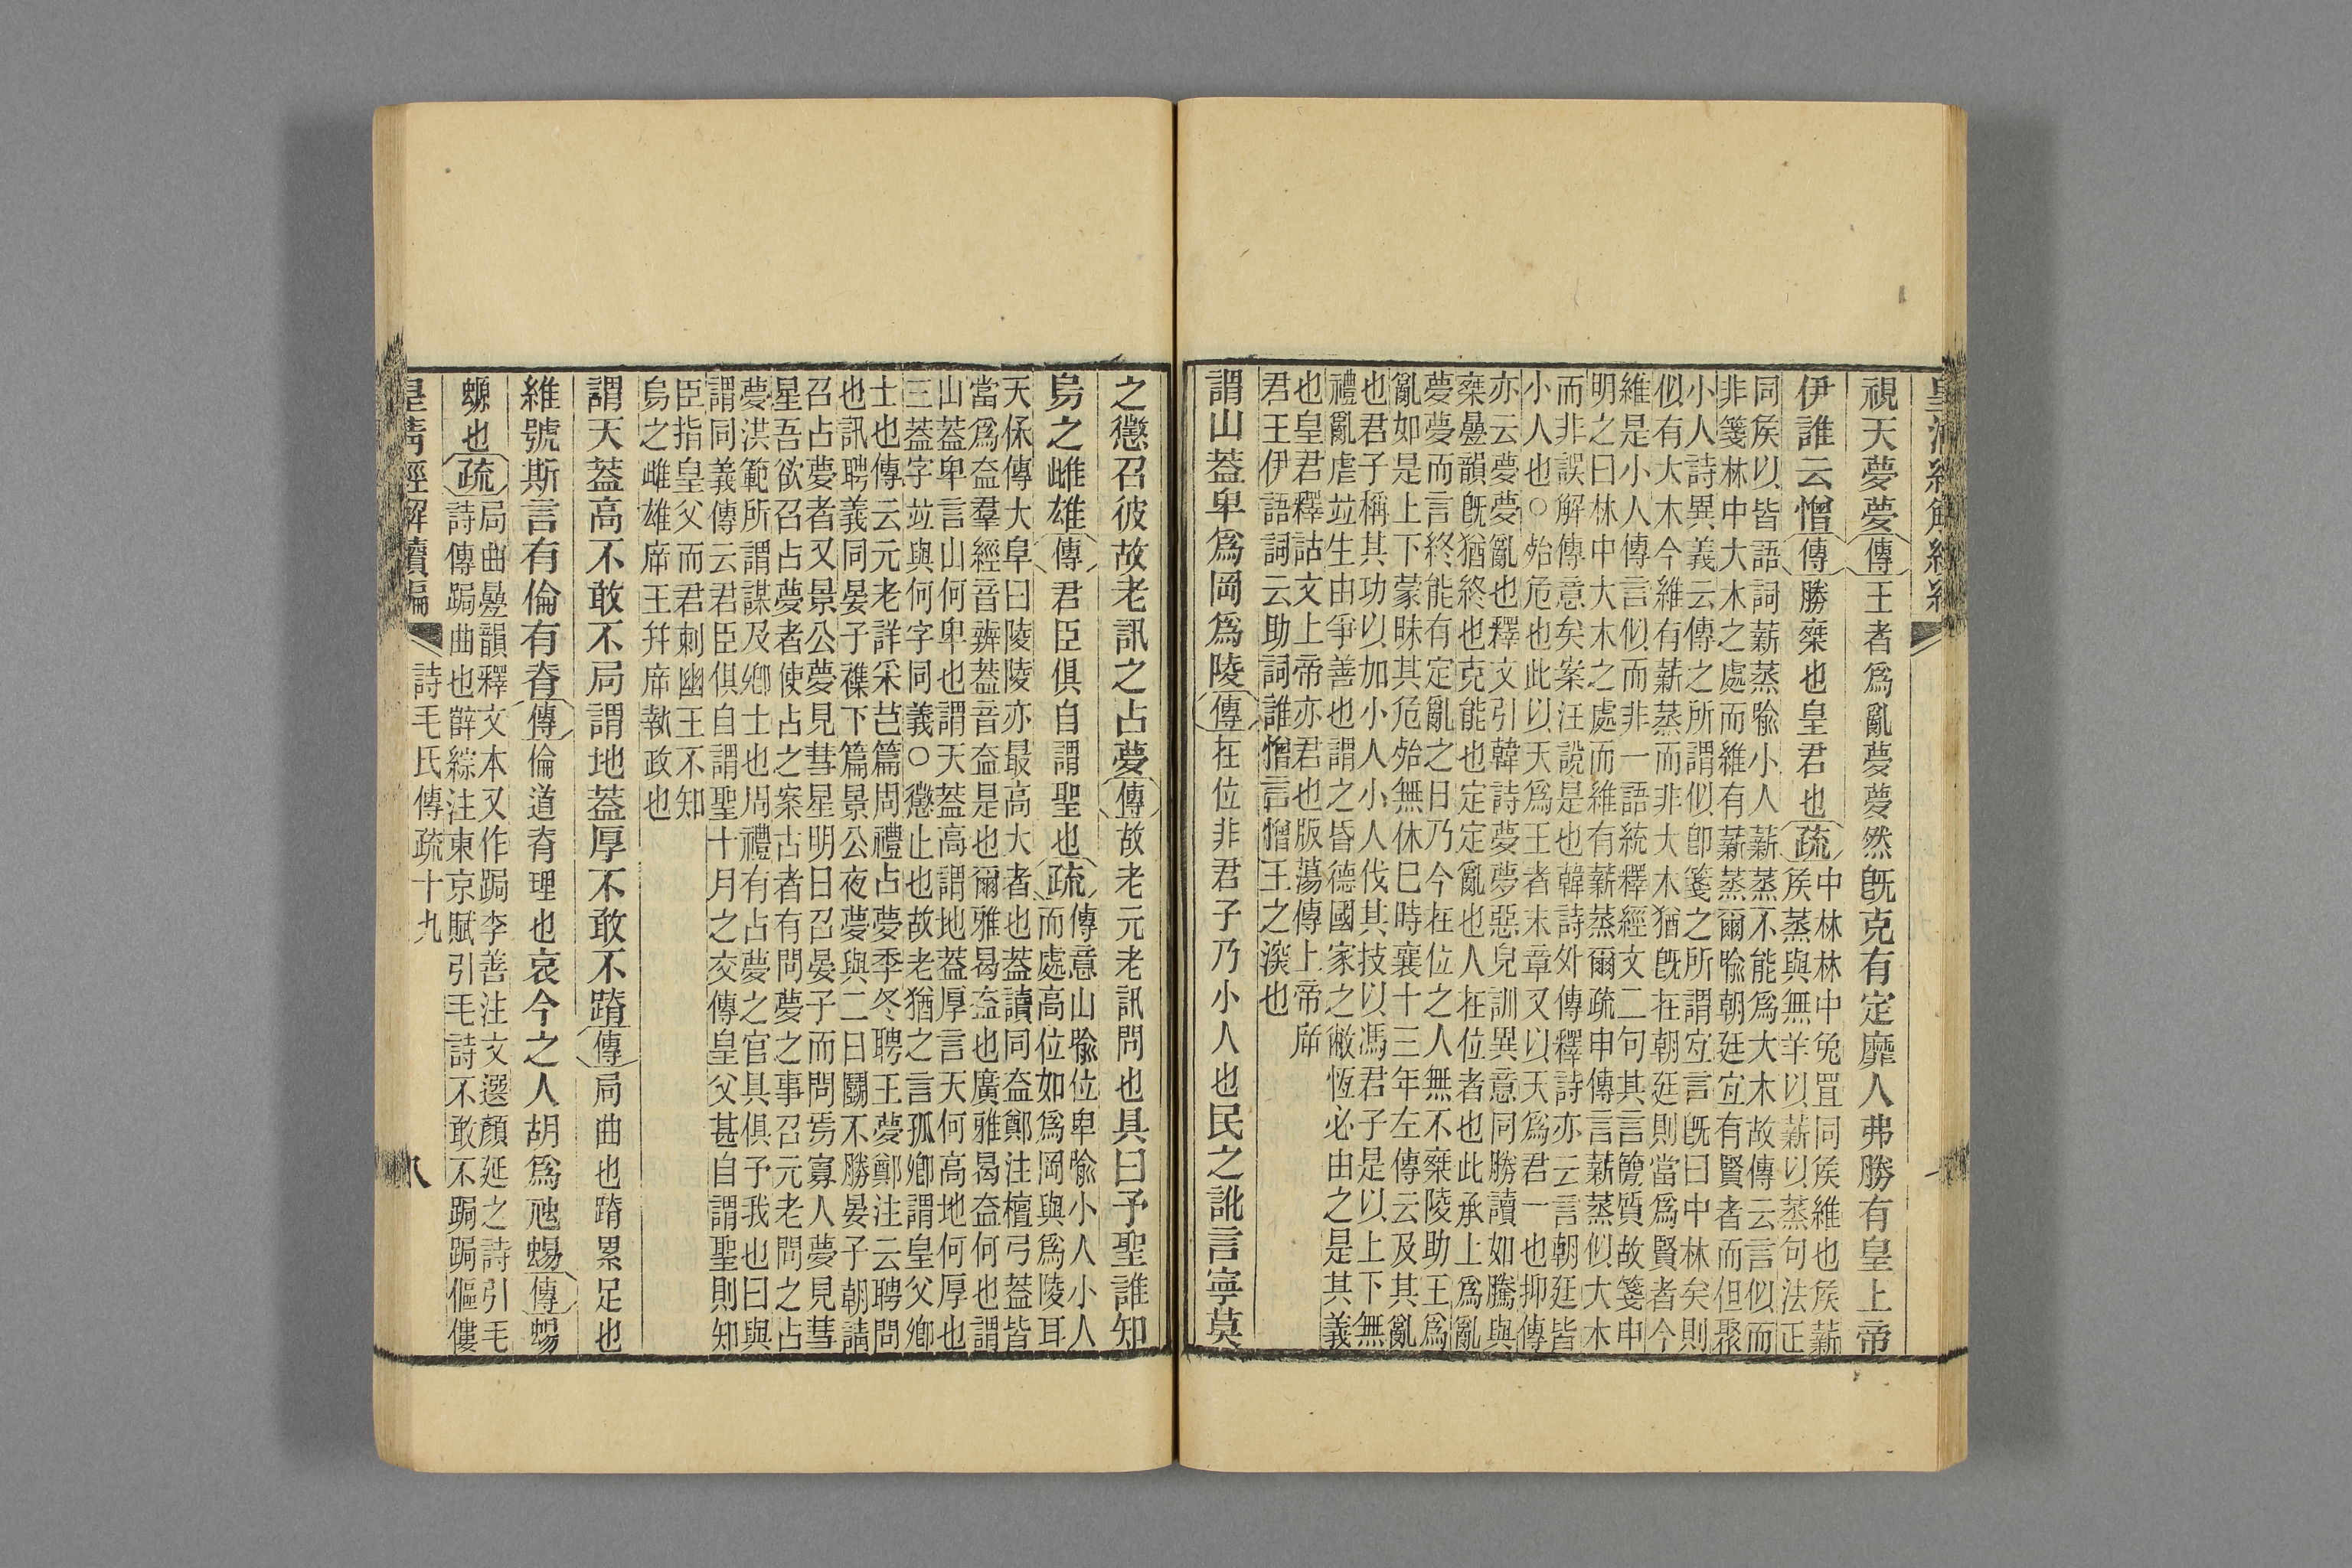 視天夢夢傳王者爲亂夢夢然旣克有定靡人弗勝有皇上帝
伊誰云憎傳勝椉也皇君也疏中林林中兔罝同矦維也矦薪
矦蒸與無羊以薪以蒸句法正
同矦以皆語詞薪蒸喩小人薪蒸不能爲大木故傳云言似而
非箋林中大木之處而維有薪蒸爾喩朝廷宐有賢者而但聚
小人詩異義云傳之所謂似卽箋之所謂宐言旣曰中林矣則
似有大木今維有薪蒸而非大木猶旣在朝廷則當爲賢者今
維是小人傳言似而非一語統釋經文二句其言簡質故箋申
明之曰林中大木之處而維有薪蒸爾疏申傳言薪蒸似大木
而非誤解傳意矣案汪說是也韓詩外傳釋詩亦云言朝廷皆
小人也○殆危也此以天爲王者末章又以天爲君一也抑傳
亦云夢夢亂也釋文引韓詩夢夢惡皃訓異意同勝讀如騰與
椉曡韻旣猶終也克能也定定亂也人在位者也此承上爲亂
夢夢而言終能有定亂之日乃今在位之人無不椉陵助王爲
亂如是上下蒙昧其危殆無休巳時襄十三年左傳云及其亂
也君子稱其功以加小人小人伐其技以馮君子是以上下無
禮亂虐竝生由爭善也謂之昏德國家之敝恆必由之是其義
也皇君釋詁文上帝亦君也版蕩傳上帝㡿
君王伊語詞云助詞誰憎言憎王之深也
謂山葢卑爲岡爲陵傳在位非君子乃小人也民之訛言寧莫
之懲召彼故老訊之占夢傳故老元老訊問也具曰予聖誰知
烏之雌雄傳君臣俱自謂聖也疏傳意山喩位卑喩小人小人
而處高位如爲岡與爲陵耳
天保傳大阜曰陵陵亦最高大者也葢讀同盍鄭注檀弓葢皆
當爲盍羣經音辨葢音盍是也爾雅曷盍也廣雅曷盍何也謂
山葢卑言山何卑也謂天葢高謂地葢厚言天何高地何厚也
三葢字竝與何字同義○懲止也故老猶之言孤鄕謂皇父鄕
士也傳云元老詳采芑篇周禮占夢季冬聘王夢鄭注云聘問
也訊聘義同晏子襍下篇景公夜夢與二日鬭不勝晏子朝請
召占夢者又景公夢見彗星明日召晏子而問焉寡人夢見彗
星吾欲召占夢者使占之案古者有問夢之事召元老問之占
夢洪範所謂謀及鄕士也周禮有占夢之官具俱予我也曰與
謂同義傳云君臣俱自謂聖十月之交傳皇父甚自謂聖則知
臣指皇父而君刺幽王不知
烏之雌雄㡿王幷㡿執政也
謂天葢高不敢不局謂地葢厚不敢不蹐傳局曲也蹐累足也
維號斯言有倫有脊傳倫道脊理也哀今之人胡爲虺蜴傳蜴
螈也疏局曲曡韻釋文本又作跼李善注文選顏延之詩引毛
詩傳跼曲也薛綜注東京賦引毛詩不敢不跼跼傴僂
皇淸經解續編
詩毛氏傳疏十九
八